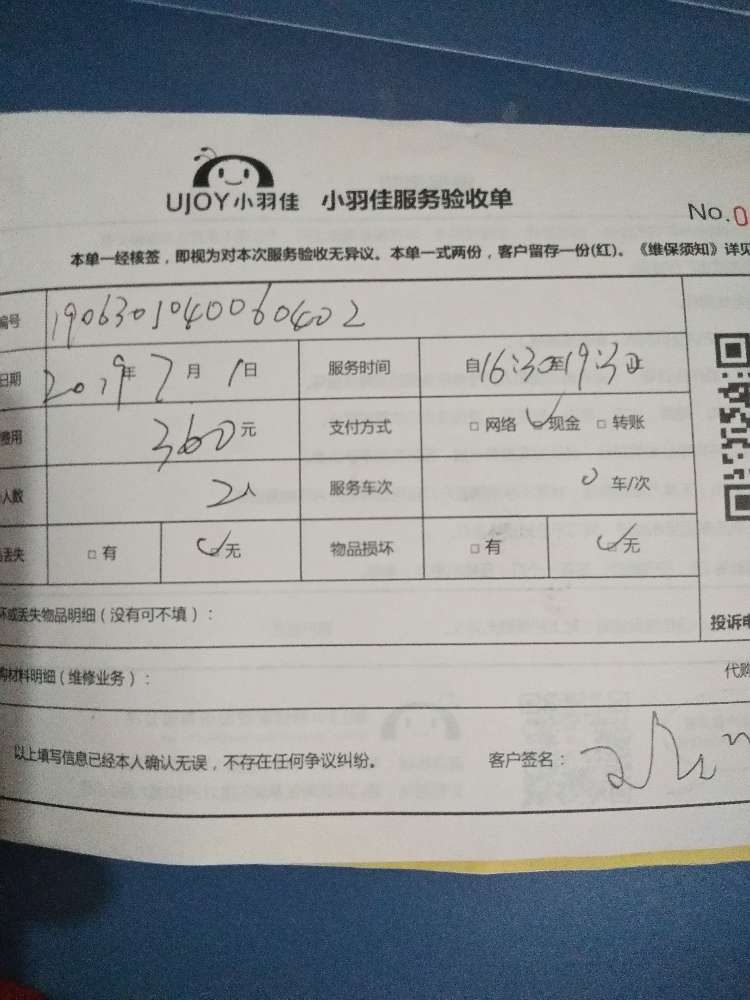 UJOY小羽佳 小羽佳服务验收单
No.0
本单一经核签，即视为对本次服务验收无异议。本单一式两份，客户留存一份(红)。《维保须知》详见
编号 1906301040060402
日期 2019年7月1日 服务时间 自16:30至19:30止
费用 360元 支付方式 □网络 ☑现金 □转账
人数 2人 服务车次 0车/次
丢失 □有 ☑无 物品损坏 □有 ☑无
坏或丢失物品明细（没有可不填）：
投诉电
购材料明细（维修业务）：
代购
以上填写信息已经本人确认无误，不存在任何争议纠纷。 客户签名：